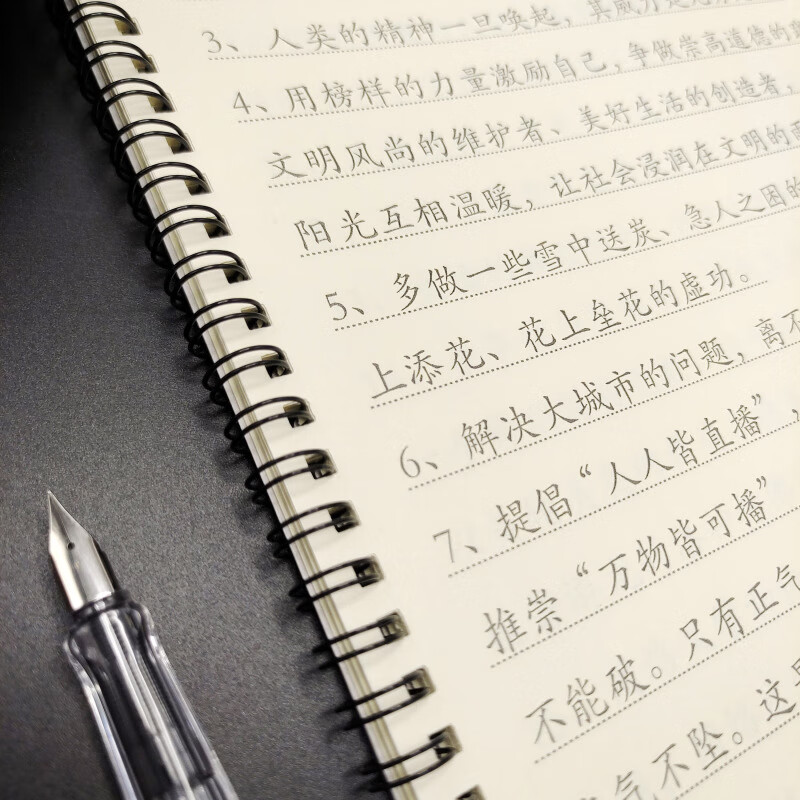 3、人类的精神一旦唤起，其威力是无
4、用榜样的力量激励自己，争做崇高道德的
文明风尚的维护者、美好生活的创造者，
阳光互相温暖，让社会浸润在文明的
5、多做一些雪中送炭、急人之困的
上添花、花上垒花的虚功。
6、解决大城市的问题，离不
7、提倡“人人皆直播”，
推崇“万物皆可播”
不能破。只有正气
气不坠。这